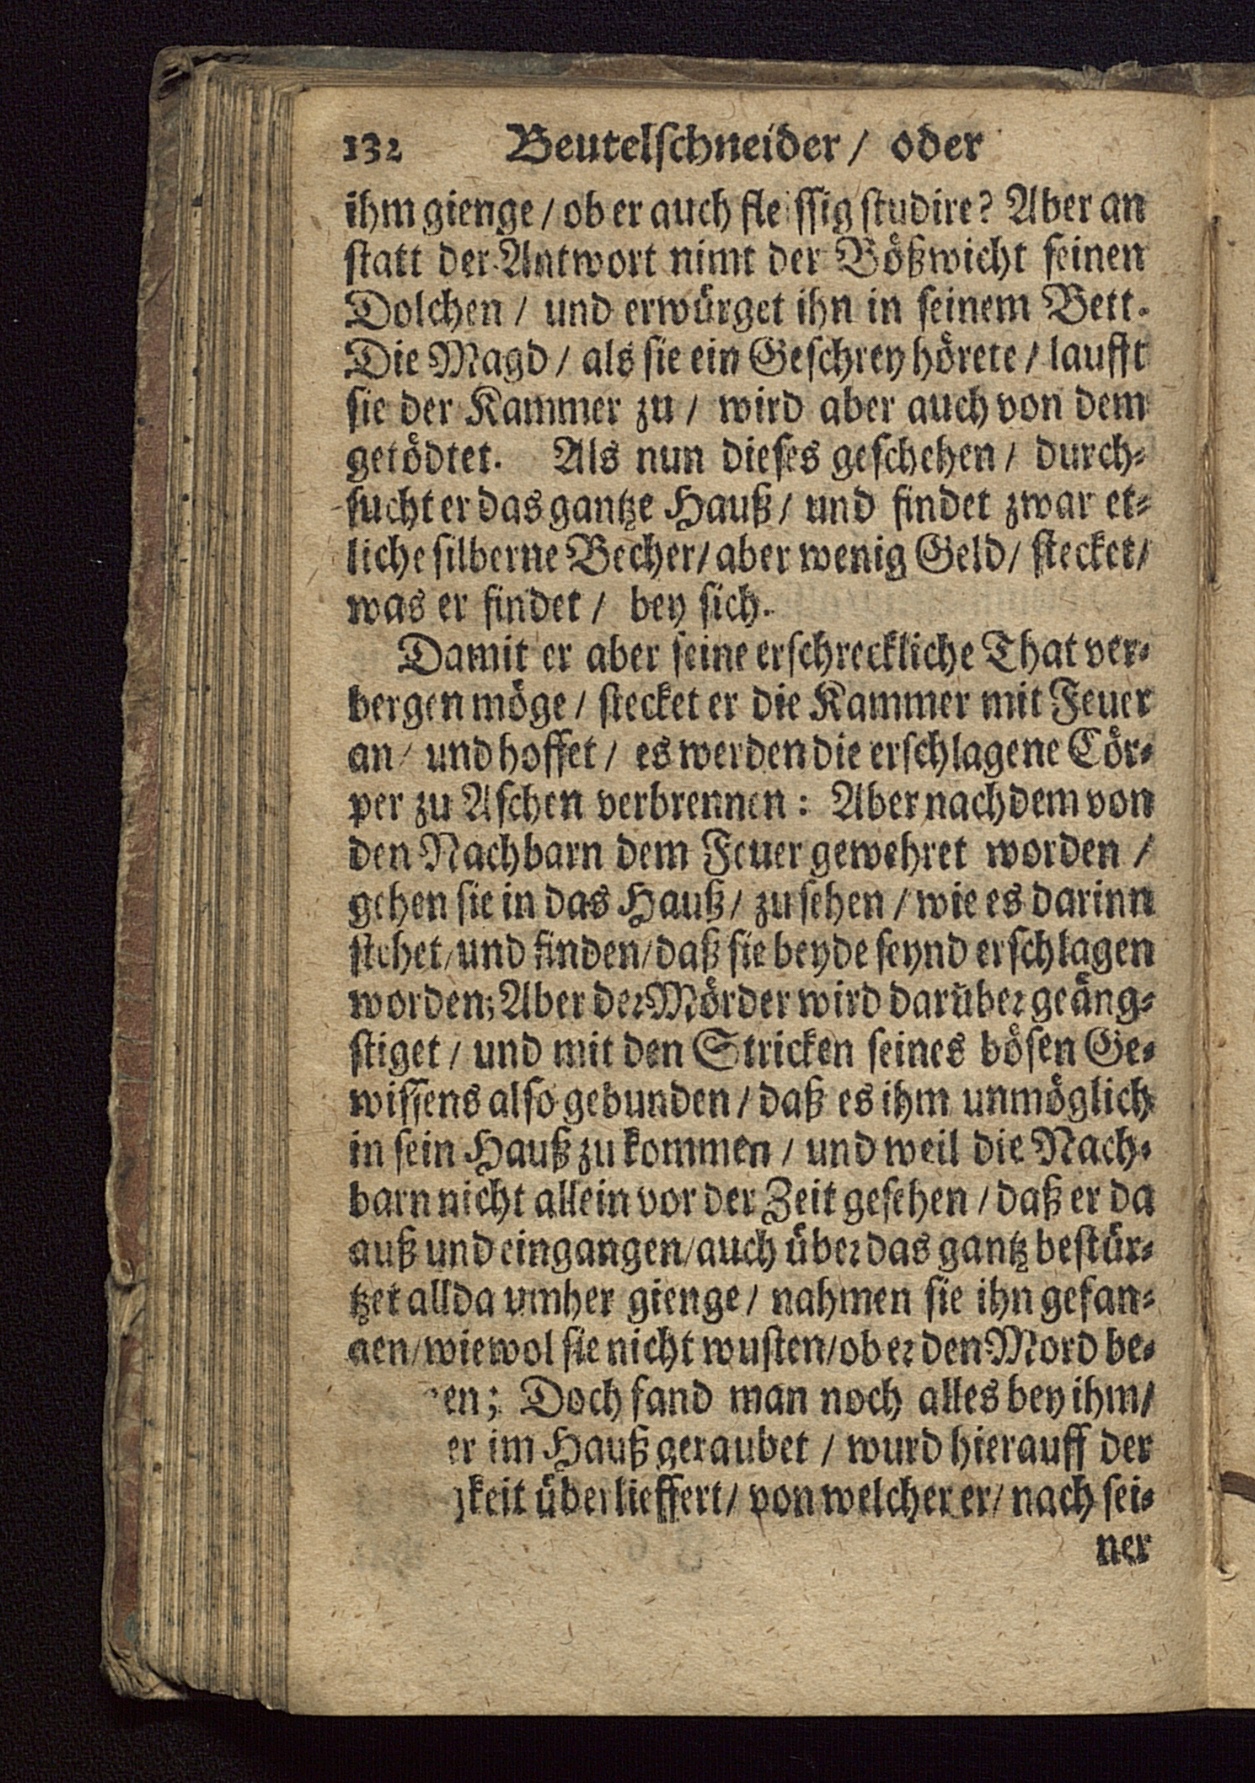 132 Beutelſchneider / oder
ihm gienge / ob er auch fleiſſig ſtudire? Aber an
ſtatt der Antwort nimt der Bößwicht ſeinen
Dolchen / und erwürget ihn in ſeinem Bett.
Die Magd / als ſie ein Geſchrey hörete / laufft
ſie der Kammer zu / wird aber auch von dem
getödtet. Als nun dieſes geſchehen / durch⸗
ſucht er das gantze Hauß / und findet zwar et⸗
liche ſilberne Becher / aber wenig Geld / ſtecket /
was er findet / bey ſich.
Damit er aber ſeine erſchreckliche That ver⸗
bergen möge / ſtecket er die Kammer mit Feuer
an / und hoffet / es werden die erſchlagene Cör⸗
per zu Aſchen verbrennen: Aber nachdem von
den Nachbarn dem Feuer gewehret worden /
gehen ſie in das Hauß / zu ſehen / wie es darinn
ſtehet / und finden / daß ſie beyde ſeynd erſchlagen
worden; Aber der Mörder wird darüber geäng⸗
ſtiget / und mit den Stricken ſeines böſen Ge⸗
wiſſens alſo gebunden / daß es ihm unmöglich
in ſein Hauß zu kommen / und weil die Nach⸗
barn nicht allein vor der Zeit geſehen / daß er da
auß und eingangen / auch über das gantz beſtür⸗
tzet allda vmher gienge / nahmen ſie ihn gefan⸗
gen / wiewol ſie nicht wuſten / ob er den Mord be⸗
en; Doch fand man noch alles bey ihm /
er im Hauß geraubet / wurd hierauff der
gkeit überlieffert / von welcher er / nach ſei⸗
ner